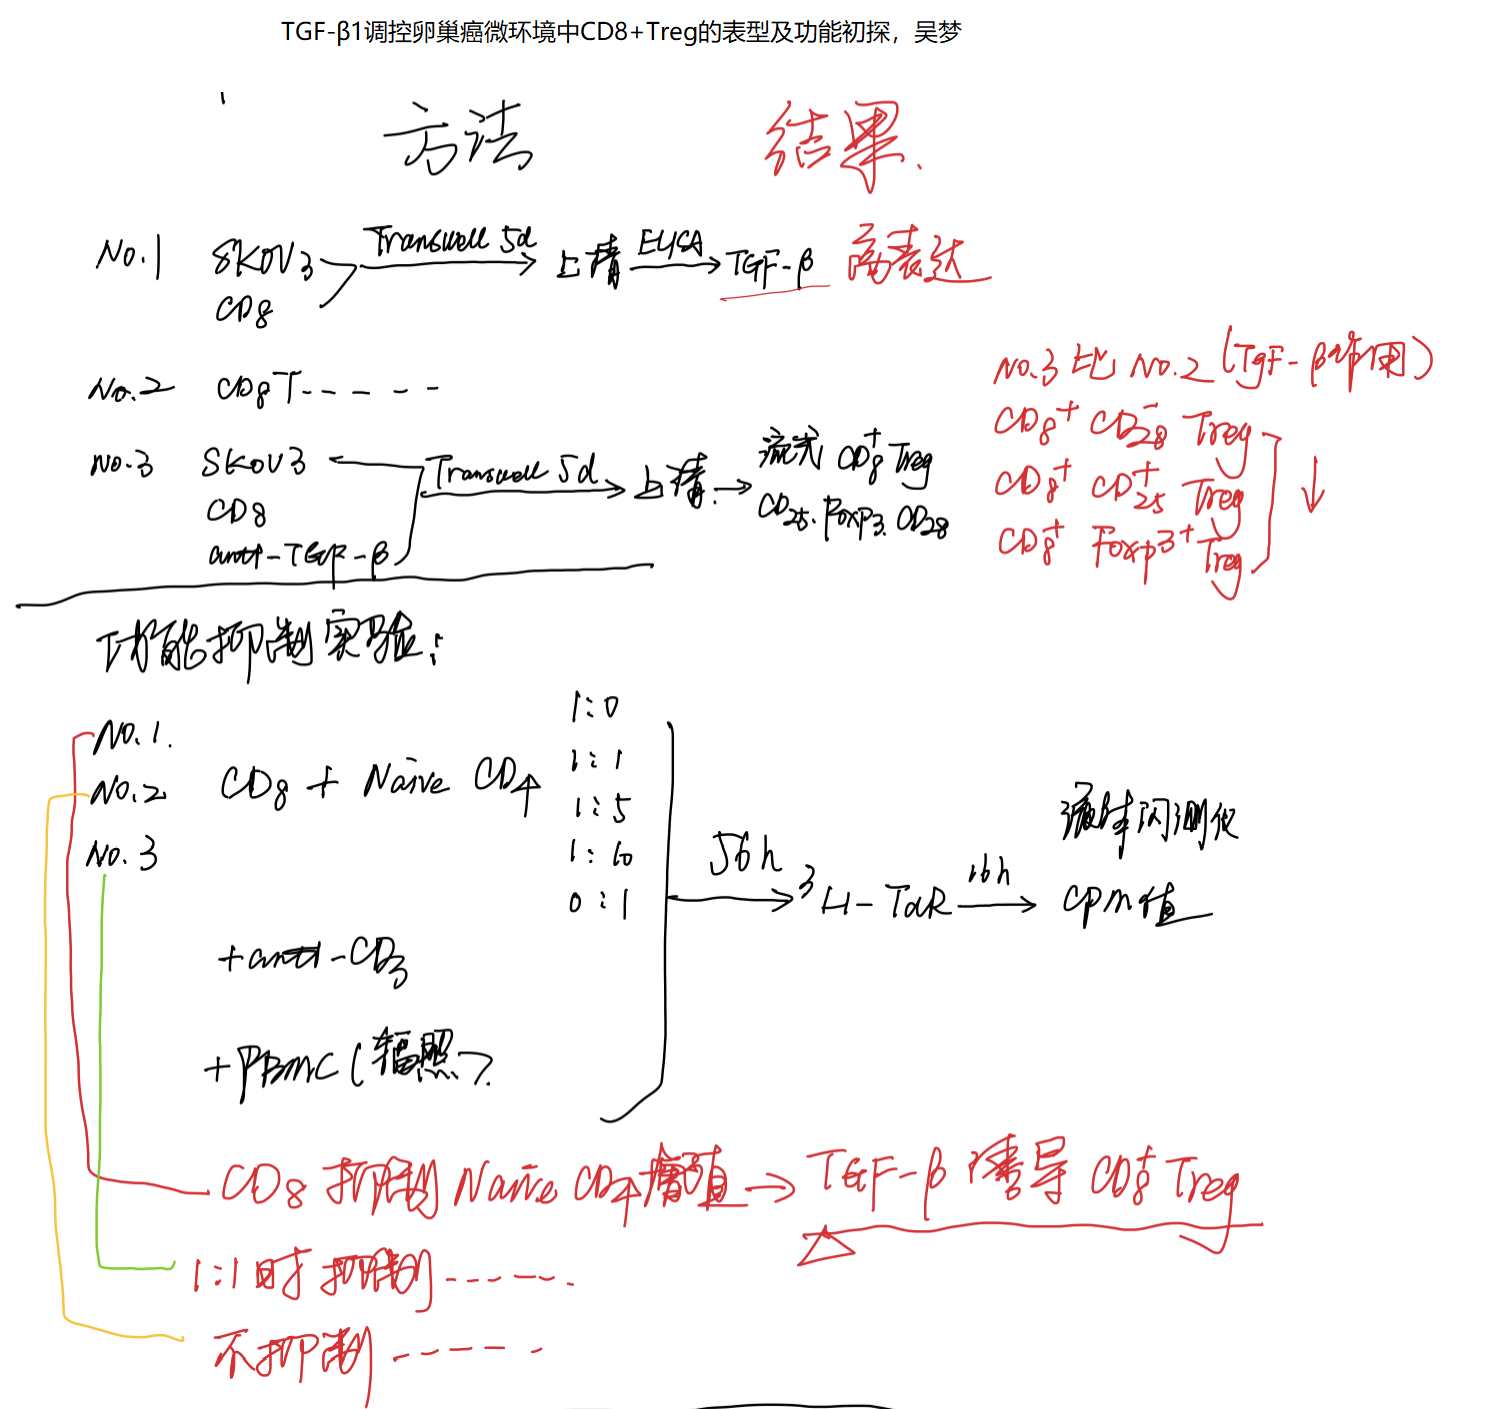 TGF-β1调控卵巢癌微环境中CD8+Treg的表型及功能初探，吴梦
方法 结果.
No.1 SKOV3 Transwell 5d 上清 ELISA TGF-β 高表达
CD8
No.2 CD8T-----
No.3 SKOV3 Transwell 5d 上清 流式 CD8+ Treg
CD8 CD25. Foxp3. CD28
anti-TGF-β
No.3 比 No.2 (TgF-β作用)
CD8+ CD28- Treg
CD8+ CD25+ Treg
CD8+ Foxp3+ Treg
↓
功能抑制实验:
No.1.
No.2 CD8 + Naive CD4
No.3
1:0
1:1
1:5
1:10
0:1
+anti-CD3
+PBMC(辐照)
56h 3H-TdR 16h
液体闪测仪
cpm值
CD8 抑制 Naive CD4增殖→TGF-β 诱导 CD8+ Treg
1:1时 抑制------
不抑制------